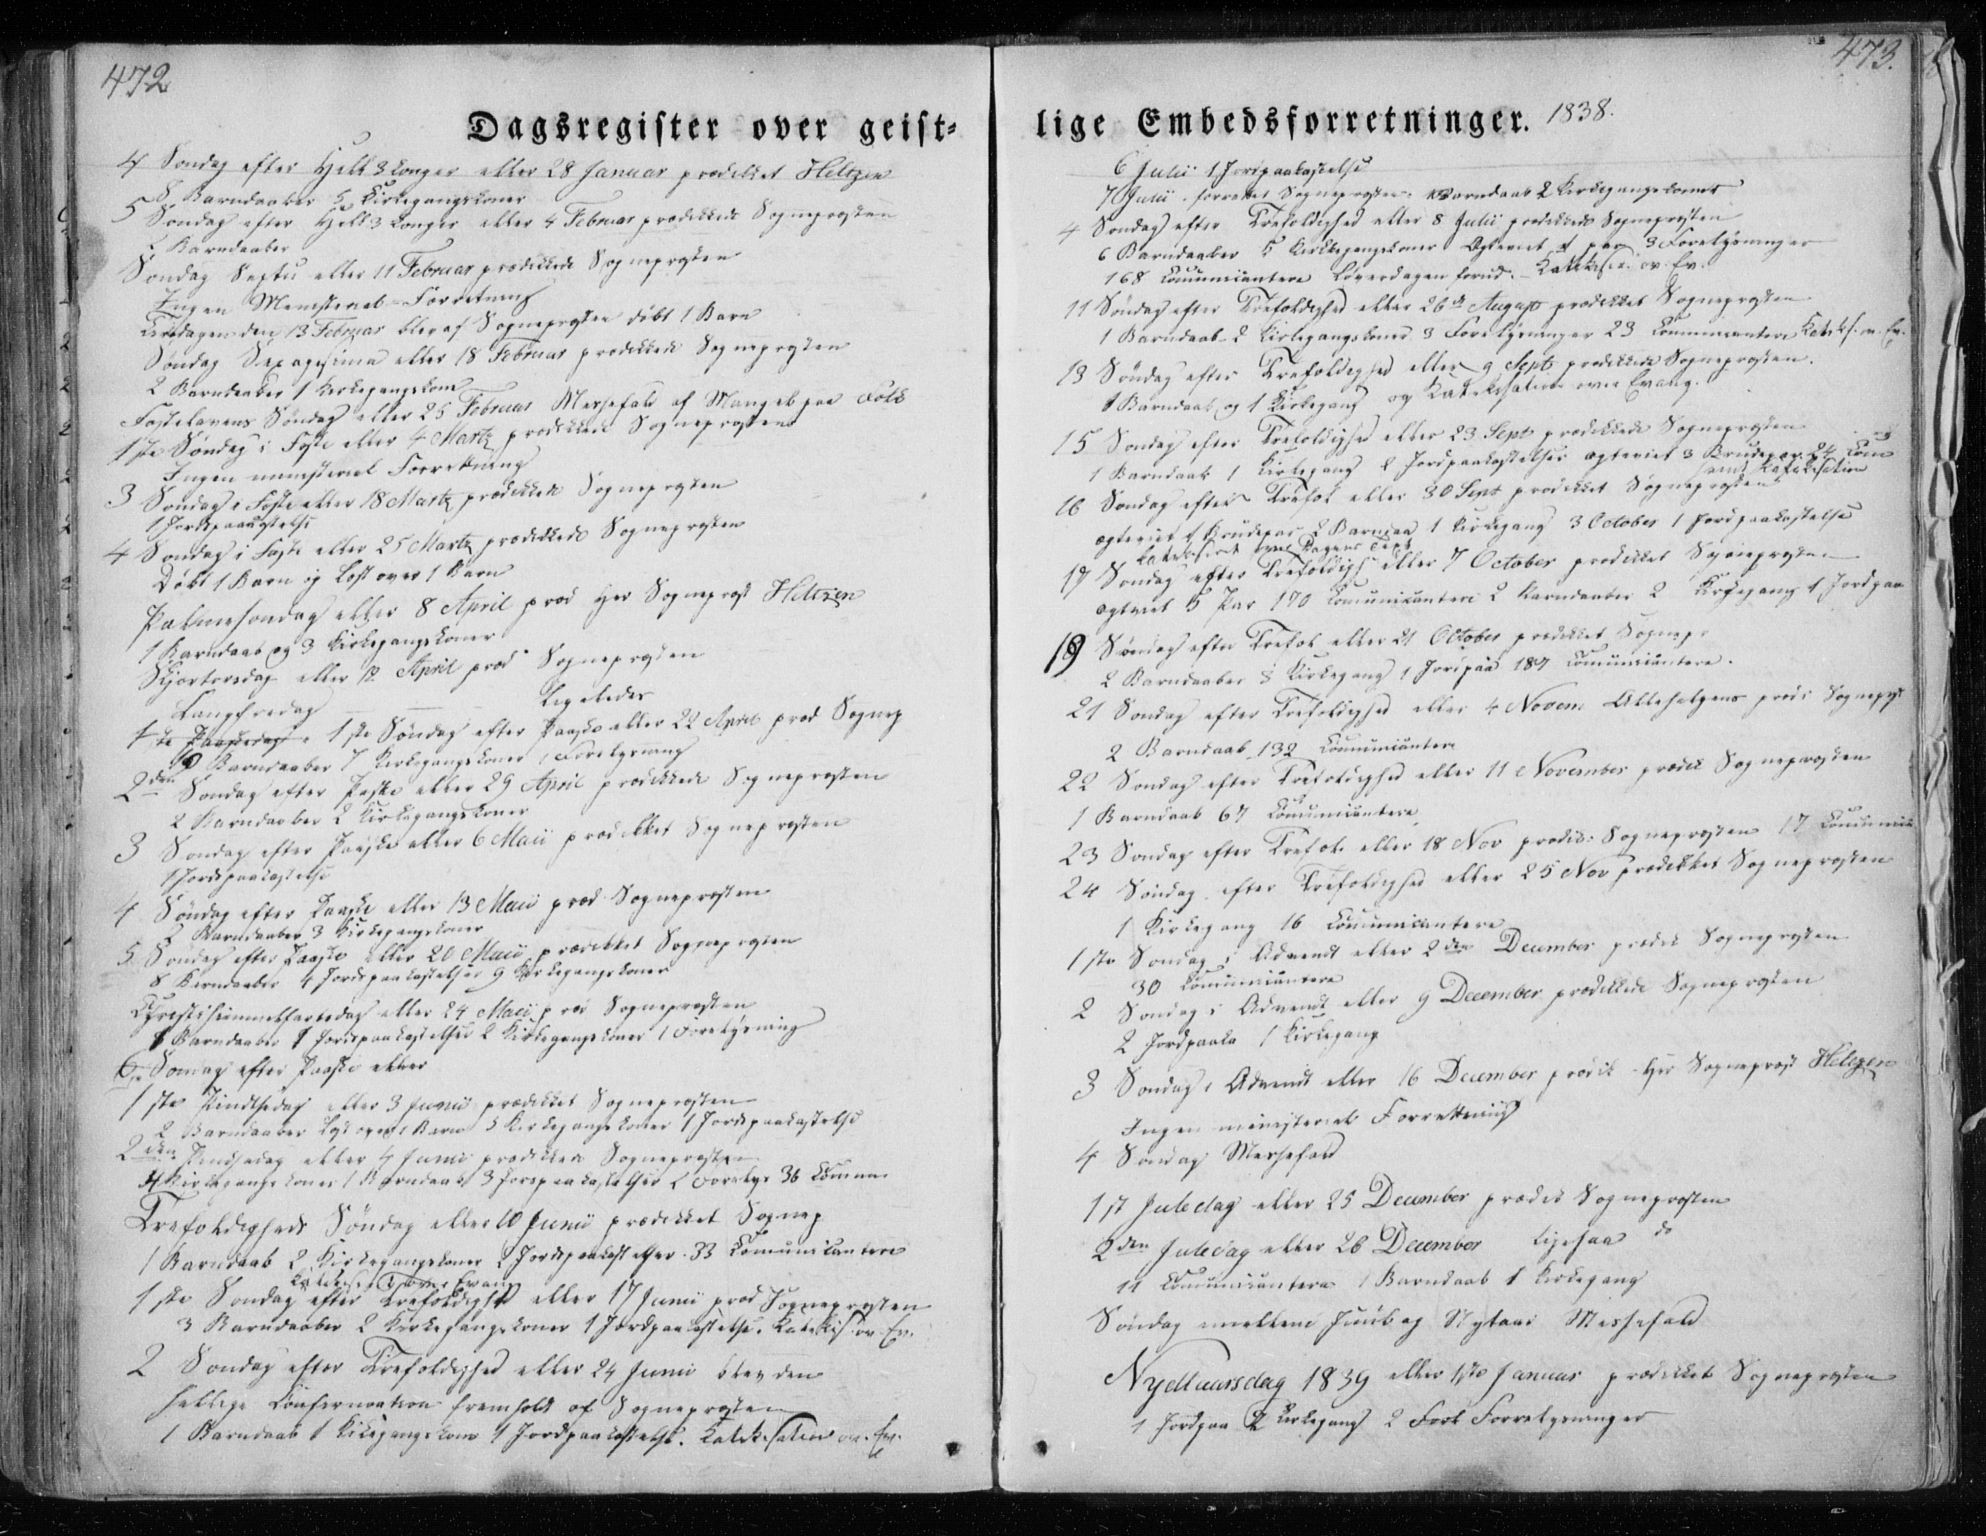 472
Dagsregister over geist-
4 Søndag efter Hell 3 Konger eller 28 Januar prædikket Heltzen
8 Barndaaber 5 Kirkegangskoner
5 Søndag efter Hell 3 Konger eller 4 Februar prædikkede Sognepræsten
Barndaaber
Søndag Septu eller 11 Februar prædikkede Sognepræsten
Ingen Ministeriel-Forretning
Tirsdagen den 13 Februar blev af Sognepræsten døbt 1 Barn
Søndag Sexagesima eller 18 Februar prædikkede Sognepræsten
2 Barndaaber 1 Kirkegangskone
Fastelavens Søndag eller 25 Februar Messefald af Mangel paa Folk
1ste Søndag i Faste eller 4 Martz prædikkede Sognepræsten
Ingen ministeriel Forretning
3 Søndag i Faste eller 18 Martz prædikkede Sognepræsten
1 Jordpaakastelse
4 Søndag i Faste eller 25 Martz prædikkede Sognepræsten
Døbt 1 Barn og kast over 1 Barn
Palmesøndag eller 8 April præd Her Sogneprest Heltzen
1 Barndaab og 3 Kirkegangskoner
Skjærtorsdag eller 12 April præd Sognepræsten
Langfredag — — Ligeledes
1ste Paaskedag 1ste Søndag efter Paaske eller 22 April præd Sognep
10 Barndaaber 7 Kirkegangskoner 1 Forelysning
2den Søndag efter Paaske eller 29 April prædikkede Sognepræsten
2 Barndaaber 2 Kirkegangskoner
3 Søndag efter Paaske eller 6 Maii prædikket Sognepræsten
1 Jordpaakastelse
4 Søndag efter Paaske eller 13 Maii præd Sognepræsten
2 Barndaaber 3 Kirkegangskoner
5 Søndag efter Paaske eller 20 Maii prædikket Sognepræsten
8 Barndaaber 4 Jordpaakastelser 9 Kirkegangskoner
Christi himmelfartsdag eller 24 Maii præd Sognepræsten
Barndaaber Jordpaakastelser 2 Kirkegangskoner 1 Forelysning
6te Søndag efter Paaske eller
1ste Pindsedag eller 3 Junii prædikket Sognepræsten
2 Barndaaber kast over 1 Barn 5 Kirkegangskoner 1 Jordpaakastelse
2den Pindsedag eller 4 Junii prædikken Sognepræsten
Kirkegangskoner 1 Barndaab 3 Jordpaakastelser 2 Forelys 36 Comm
Trefoldigheds Søndag eller 10 Junii prædikket Sognep
1 Barndaab 2 Kirkegangskoner 2 Jordpaakastelser. 33 Communicantere
Katekiset over Evang
1ste Søndag efter Trefoldighed eller 17 Junii præd Sognepræsten
3 Barndaaber 2 Kirkegangskoner 1 Jordpaakastelse. Katekis. ov. Ev.
2 Søndag efter Trefoldighed eller 24 Junii blev den
hellige Confirmation fremholdt af Sognepræsten
1 Barndaab 1 Kirkegangskone 1 Jordpaakastelse. Katekisation ov. Ev.
473.
lige Embedsforretninger. 1838.
6 Julii 1 Jordpaakastelse
7 Julii forrettet Sognepræsten Barndaab 2 Kirkegangskoner
4 Søndag efter Trefoldighed eller 8 Julii prædikkede Sognepræsten
6 Barndaaber 5 Kirkegangskoner Egteviet 1 par 3 Forelysninger
168 Communicantere Løverdagen forud. - Katekiset. ov. Ev.
11 Søndag efter Trefoldighed eller 26de August prædikket Sognepræsten
1 Barndaab 2 Kirkegangskoner 3 Forelysninger 23 Communicantere Katekis. ov. Ev.
13 Søndag efter Trefoldighed eller 9 Septr prædikkede Sognepræsten.
1 Barndaab og 1 Kirkegang og Katekisation over Evang.
15 Søndag efter Trefoldighed eller 23 Sept prædikkede Sognepræsten
1 Barndaab 1 Kirkegang 2 Jordpaakastelser egteviet 3 Brudepar 24 Com
samt Katekisation
16 Søndag efter Trefol eller 30 Sept prædikket Sognepræsten
egteviet 1 Brudepar 2 Barndaa 1 Kirkegang 3 October 1 Jordpaakastelse
katekiseret over Dagens Text
17 Søndag efter Trefoldigh eller 7 October prædikket Sognepræsten
egteviet 5 Par 170 Communicantere 2 Barndaaber 2 Kirkegang 1 Jordpaa
19 Søndag efter Trefol eller 21 October prædikket Sognepr
2 Barndaaber 3 Kirkegang 1 Jordpaa 187 Communicantere.
21 Søndag efter Trefoldighed eller 4 Novem Allehelgens præd: Sognepr
2 Barndaab 132 Communicantere
22 Søndag efter Trefoldighed eller 11 November prædik Sognepræsten
1 Barndaab 67 Communicantere
23 Søndag efter Trefol. eller 18 Nov prædik: Sognepræsten 17 Communica
24 Søndag efter Trefoldighed eller 25 Nov prædikket Sognepræsten
1 Kirkegang 16 Communicantere
1ste Søndag i Advendt eller 2den December prædik Sognepræsten
30 Communicantere
2 Søndag i Advendt eller 9 December prædikkede Sognepræsten
2 Jordpaaka 1 Kirkegang
3 Søndag i Advendt eller 16 December prædik Her Sogneprest Heltzen
Ingen ministeriel Forretning
4 Søndag Messefald
1st Juledag eller 25 December prædik Sognepræsten
2den Juledag eller 26 December ligesaa do
11 Communicantere 1 Barndaab 1 Kirkegang
Søndag mellem Juul og Nytaar Messefald
Nydtaarsdag 1839 eller 1ste Januar prædikket Sognepræsten
1 Jordpaa 2 Kirkegang 2 Forl Forrelysninger